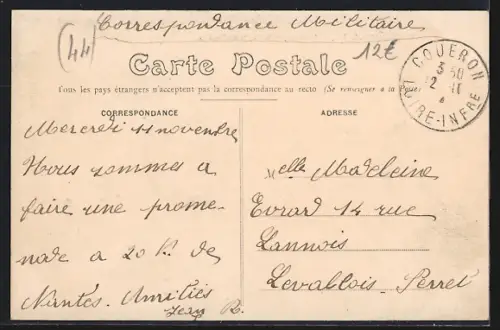 Correspondance Militaire
(44)
12€
Carte Postale
Tous les pays étrangers n'acceptent pas la correspondance au recto (Se renseigner à la Poste)
COUERON
3 50
2 11
LOIRE-INFRE
CORRESPONDANCE
Mercredi 11 novembre
Nous sommes a
faire une prome-
nade a 20 K. de
Nantes. Amitiés
Jean R.
ADRESSE
Melle Madeleine
Evrard 14 rue
Lannois
Levallois-Perret